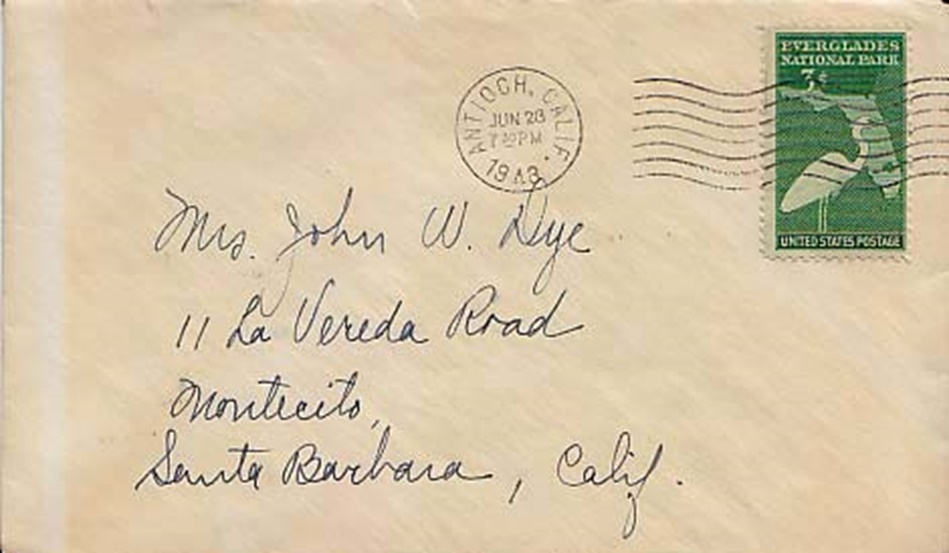 EVERGLADES
NATIONAL PARK
3¢
UNITED STATES POSTAGE
ANTIOCH, CALIF.
JUN 28
PM
1948
Mrs. John W. Dye
11 La Vereda Road
Montecito,
Santa Barbara, Calif.